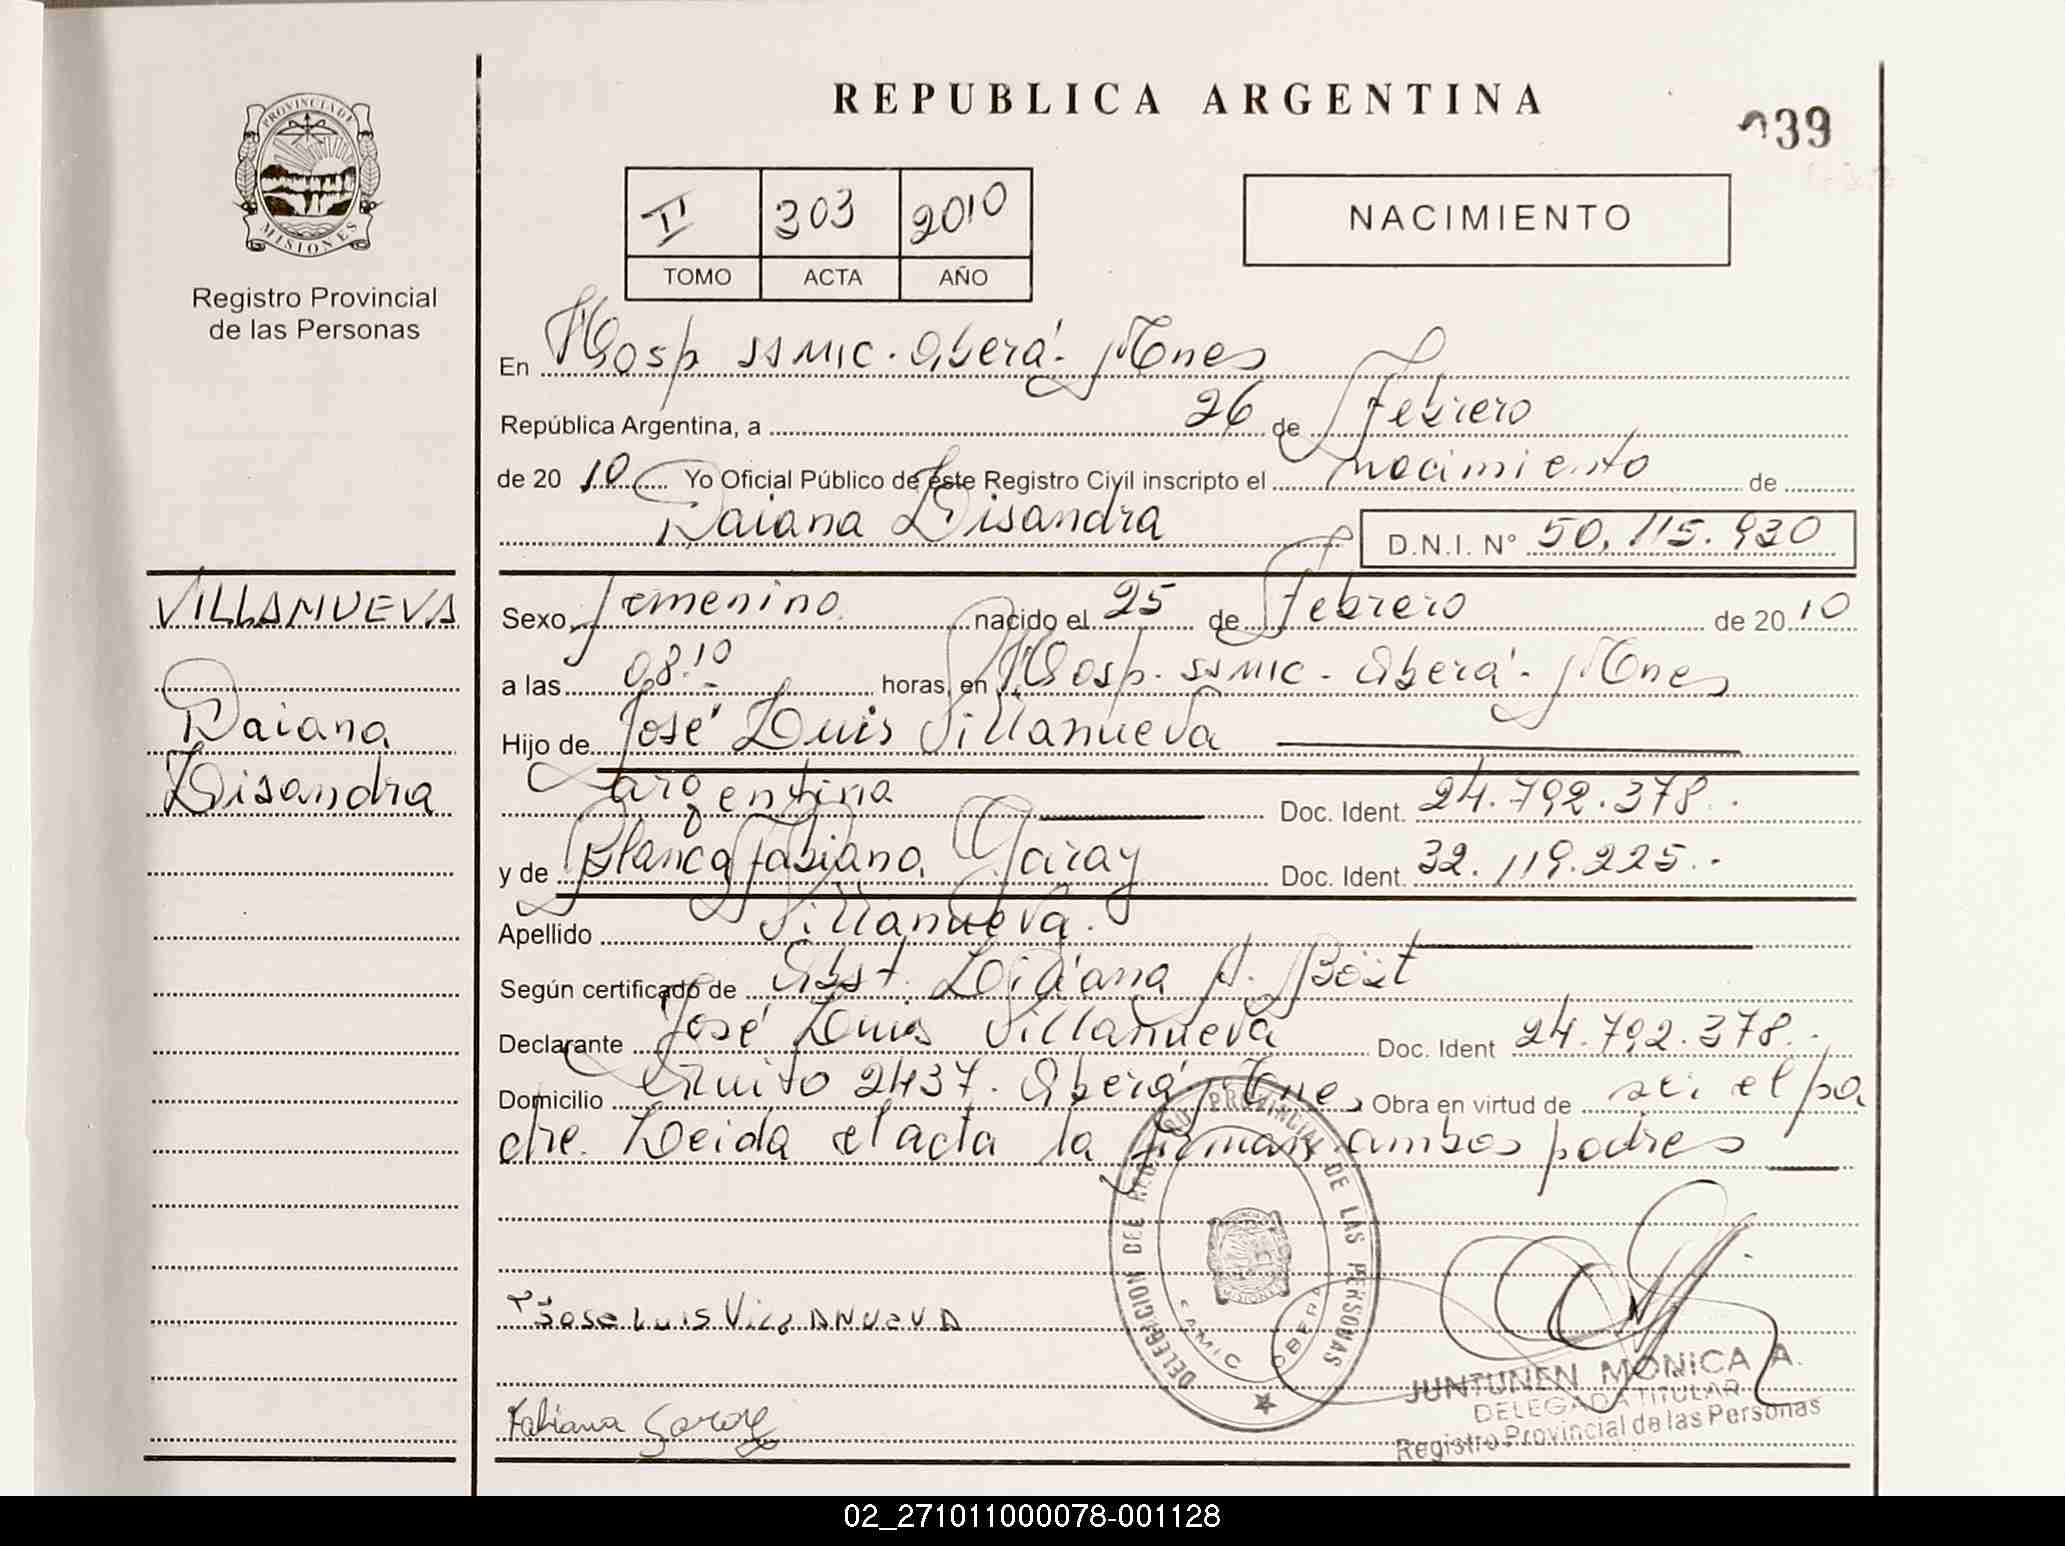 REPUBLICA ARGENTINA
039
PROVINCIA DE
MISIONES
Registro Provincial
de las Personas
II 303 2010
TOMO ACTA AÑO
NACIMIENTO
En Hosp SAMIC. Oberá. Mnes
República Argentina, a 26 de Febrero
de 20 10 Yo Oficial Público de este Registro Civil inscripto el nacimiento de
Daiana Lisandra D.N.I. N° 50.115.930
VILLANUEVA
Daiana
Lisandra
Sexo femenino nacido el 25 de Febrero de 20 10
a las 08.10 horas, en Hosp. SAMIC - Oberá - Mnes
Hijo de José Luis Villanueva
Argentina Doc. Ident. 24.792.378.
y de Blanca Fabiana Garay Doc. Ident. 32.119.225.
Apellido Villanueva.
Según certificado de Obst. Lidiana A. Böst
Declarante José Luis Villanueva Doc. Ident 24.792.378.
Domicilio 2437. Oberá Mnes Obra en virtud de ser el pa
dre. Leida el acta la firman ambos padres
Jose Luis Villanueva
Fabiana Garay
DELEGACION DEL REGISTRO PROVINCIAL DE LAS PERSONAS
SAMIC OBERA
JUNTUNEN MONICA A.
DELEGADA TITULAR
Registro Provincial de las Personas
02_271011000078-001128